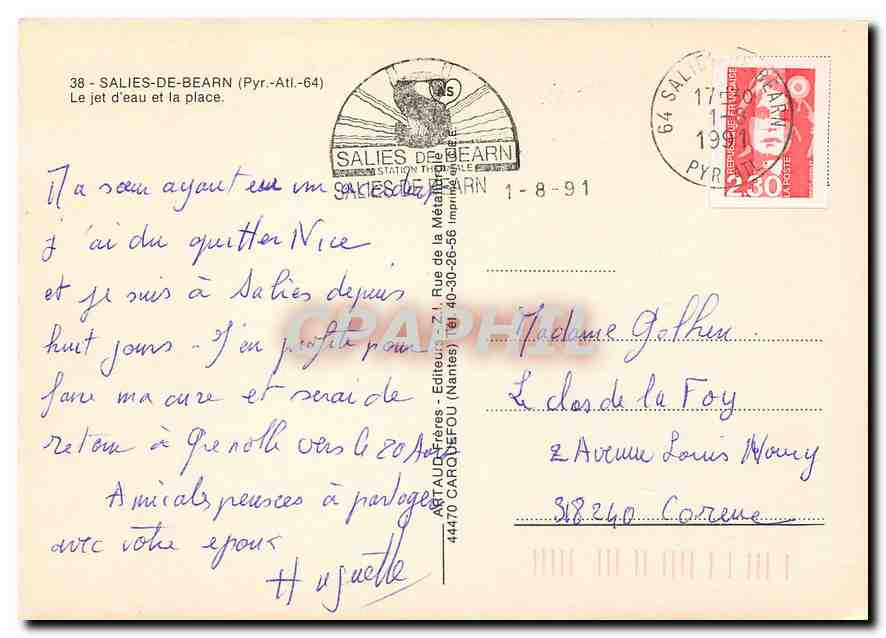 38 - SALIES-DE-BEARN (Pyr.-Atl.-64)
Le jet d'eau et la place.
Ma sœur ayant eu un accident
j'ai du quitter Nice
et je suis à Salies depuis
huit jours - J'en profite pour
faire ma cure et serai de
retour à Grenoble vers le 20 Août
Amicales pensées à partager
avec votre epoux
Huguette
ARTAUD Frères - Editeurs - Z.I. Rue de la Métallurgie
44470 CARQUEFOU (Nantes) Tél. 40-30-26-56 Imprimé en C.E.E.
AS
SALIES DE BEARN
STATION THERMALE
SALIES DE BEARN 1-8-91
64 SALIES DE BEARN
17
1-8
1991
PYR
REPUBLIQUE FRANÇAISE
2,30
LA POSTE
Madame
Le clos de la Foy
2 Avenue Louis
38240 Corenc
CPAPHIL